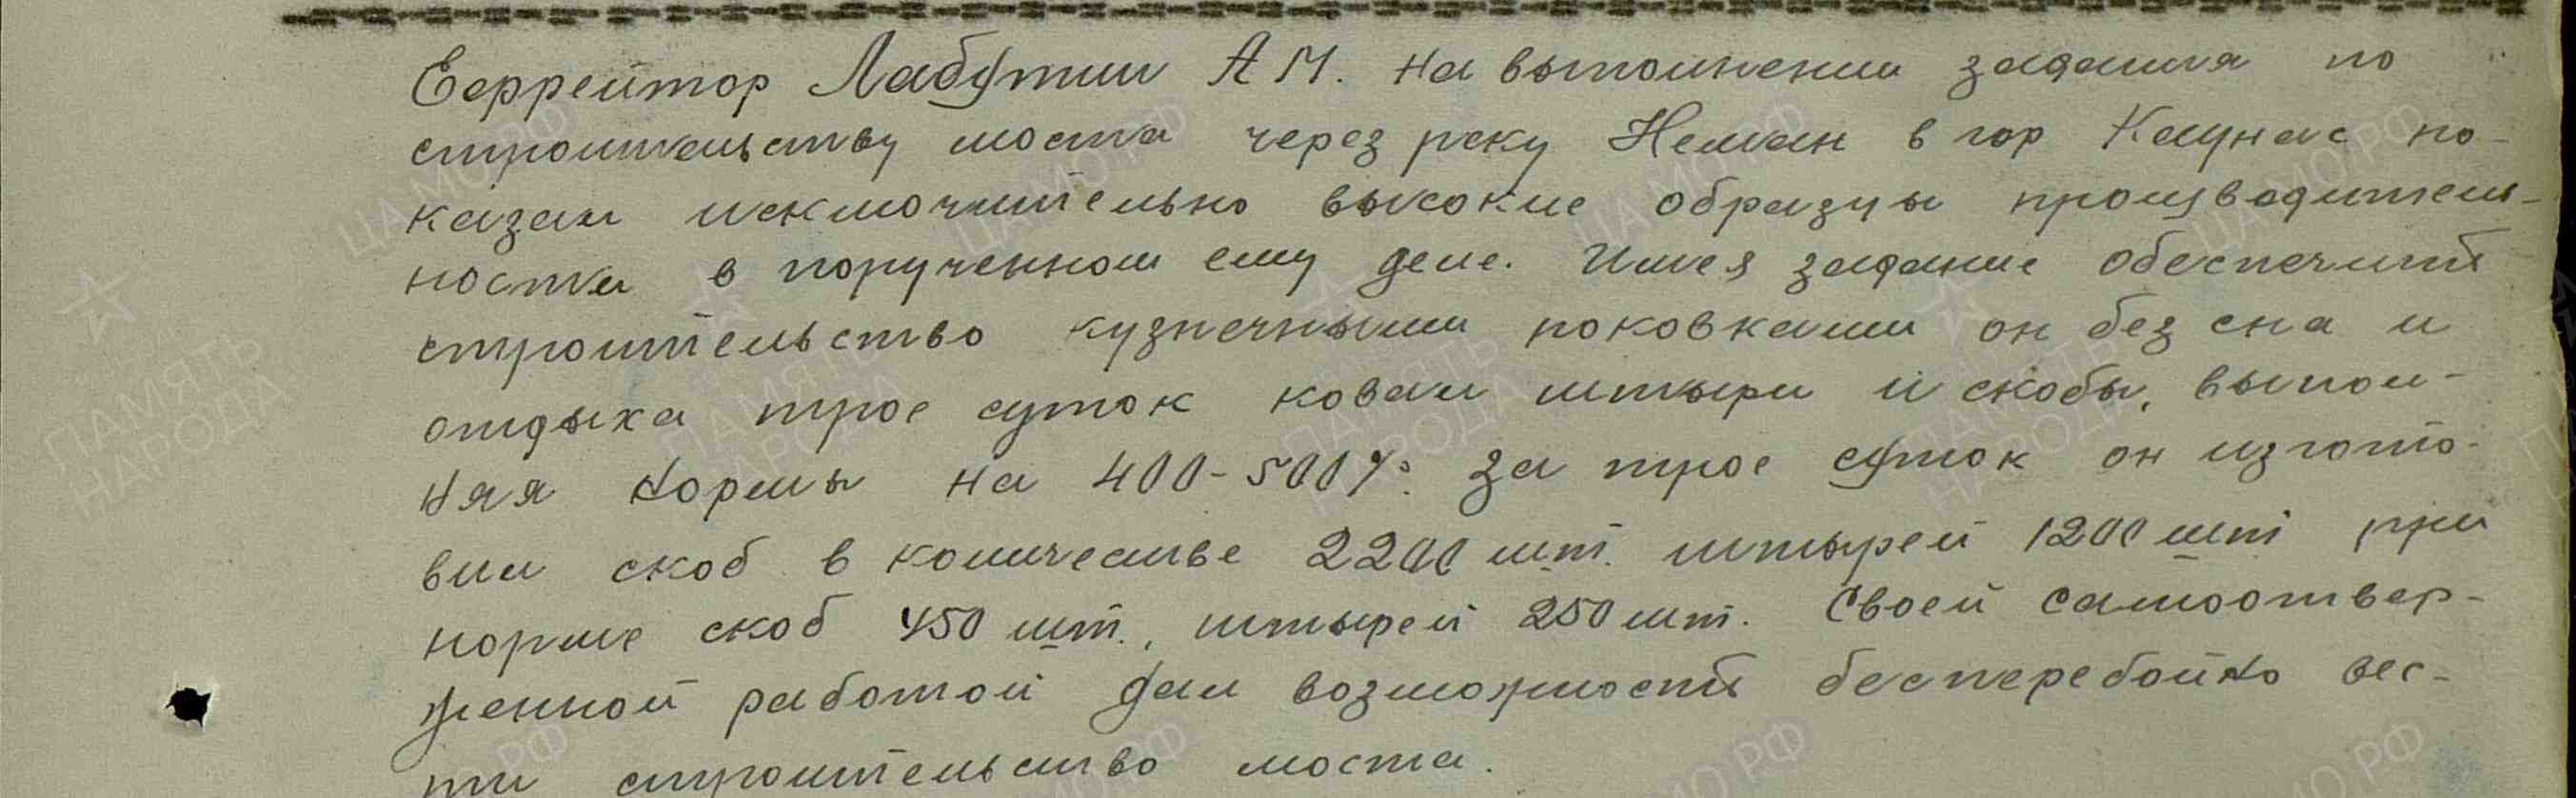 Ефрейтор Лабутин А М. на выполнении задания по
строительству моста через реку Неман в гор Каунас по-
казал исключительно высокие образцы производитель-
ности в порученном ему деле. Имея задание обеспечить
строительство кузнечными поковками он без сна и
отдыха трое суток ковал штыри и скобы, выпол-
няя нормы на 400-500%. За трое суток он изгото-
вил скоб в количестве 2200 шт. штырей 1200 шт при
норме скоб 450 шт., штырей 250 шт. Своей самоотвер-
женной работой дал возможность бесперебойно вес-
ти строительство моста.
ПАМЯТЬ НАРОДА
ЦАМО.РФ